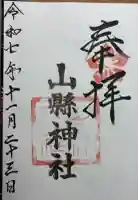 奉拝
山縣神社
令和七年十一月二十三日